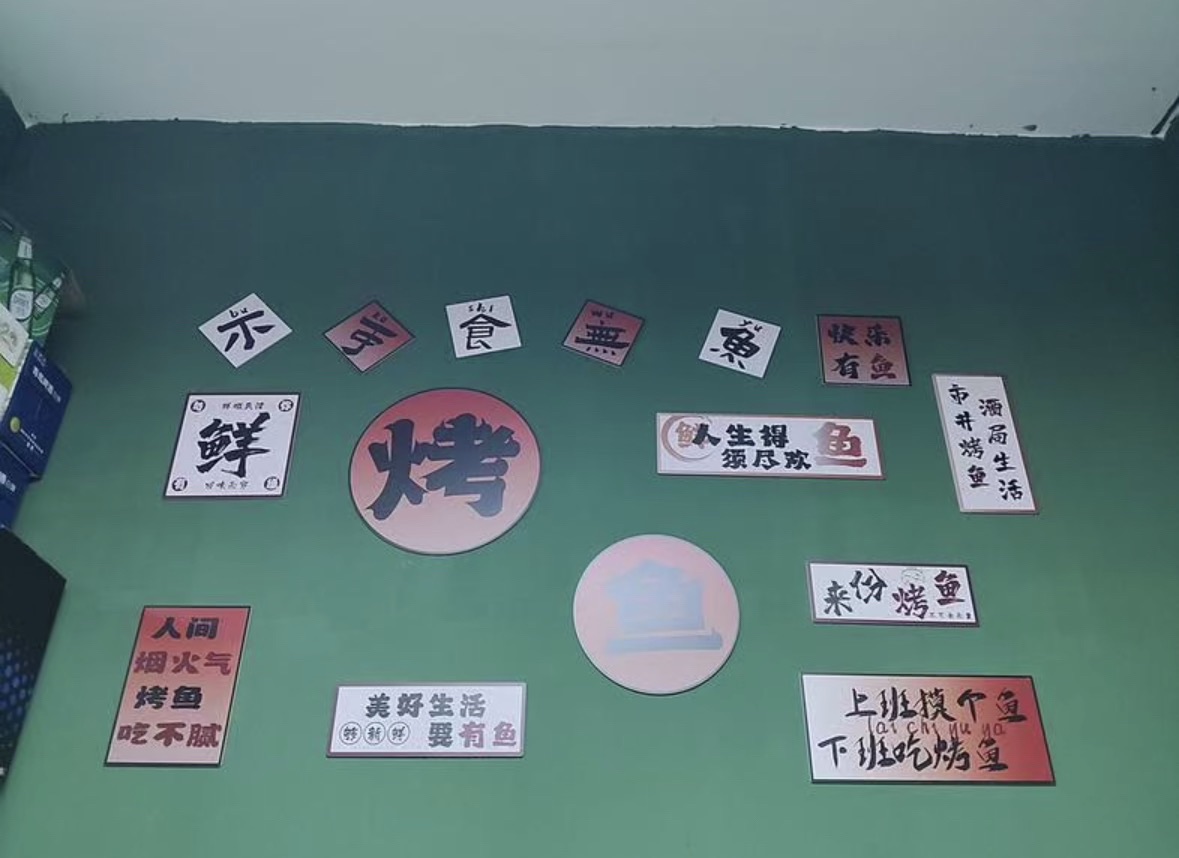 bu
不
ke
可
shi
食
wu
無
yu
魚
快乐
有鱼
有
鲜
烤
鲜
人生得
须尽欢
鱼
市井烤鱼
酒局生活
鱼
来份烤鱼
人间
烟火气
烤鱼
吃不腻
美好生活
特新鲜
要有鱼
上班摸个鱼
ai chi yu ya
下班吃烤鱼